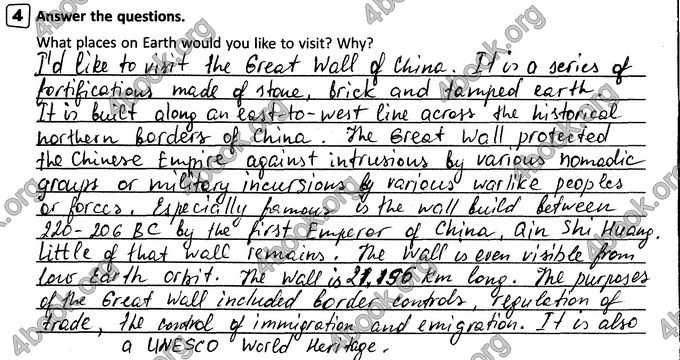 4 Answer the questions.
What places on Earth would you like to visit? Why?
I'd like to visit the Great Wall of China. It is a series of
fortifications made of stone, brick and tamped earth.
It is built along an east-to-west line across the historical
northern borders of China. The Great Wall protected
the Chinese Empire against intrusions by various nomadic
groups or military incursions by various warlike peoples
or forces. Especially famous is the wall build between
220-206 BC by the first Emperor of China, Qin Shi Huang.
Little of that wall remains. The Wall is even visible from
low Earth orbit. The wall is 21,196 km long. The purposes
of the Great Wall included border controls, regulation of
trade, the control of immigration and emigration. It is also
a UNESCO World Heritage.
4book.org